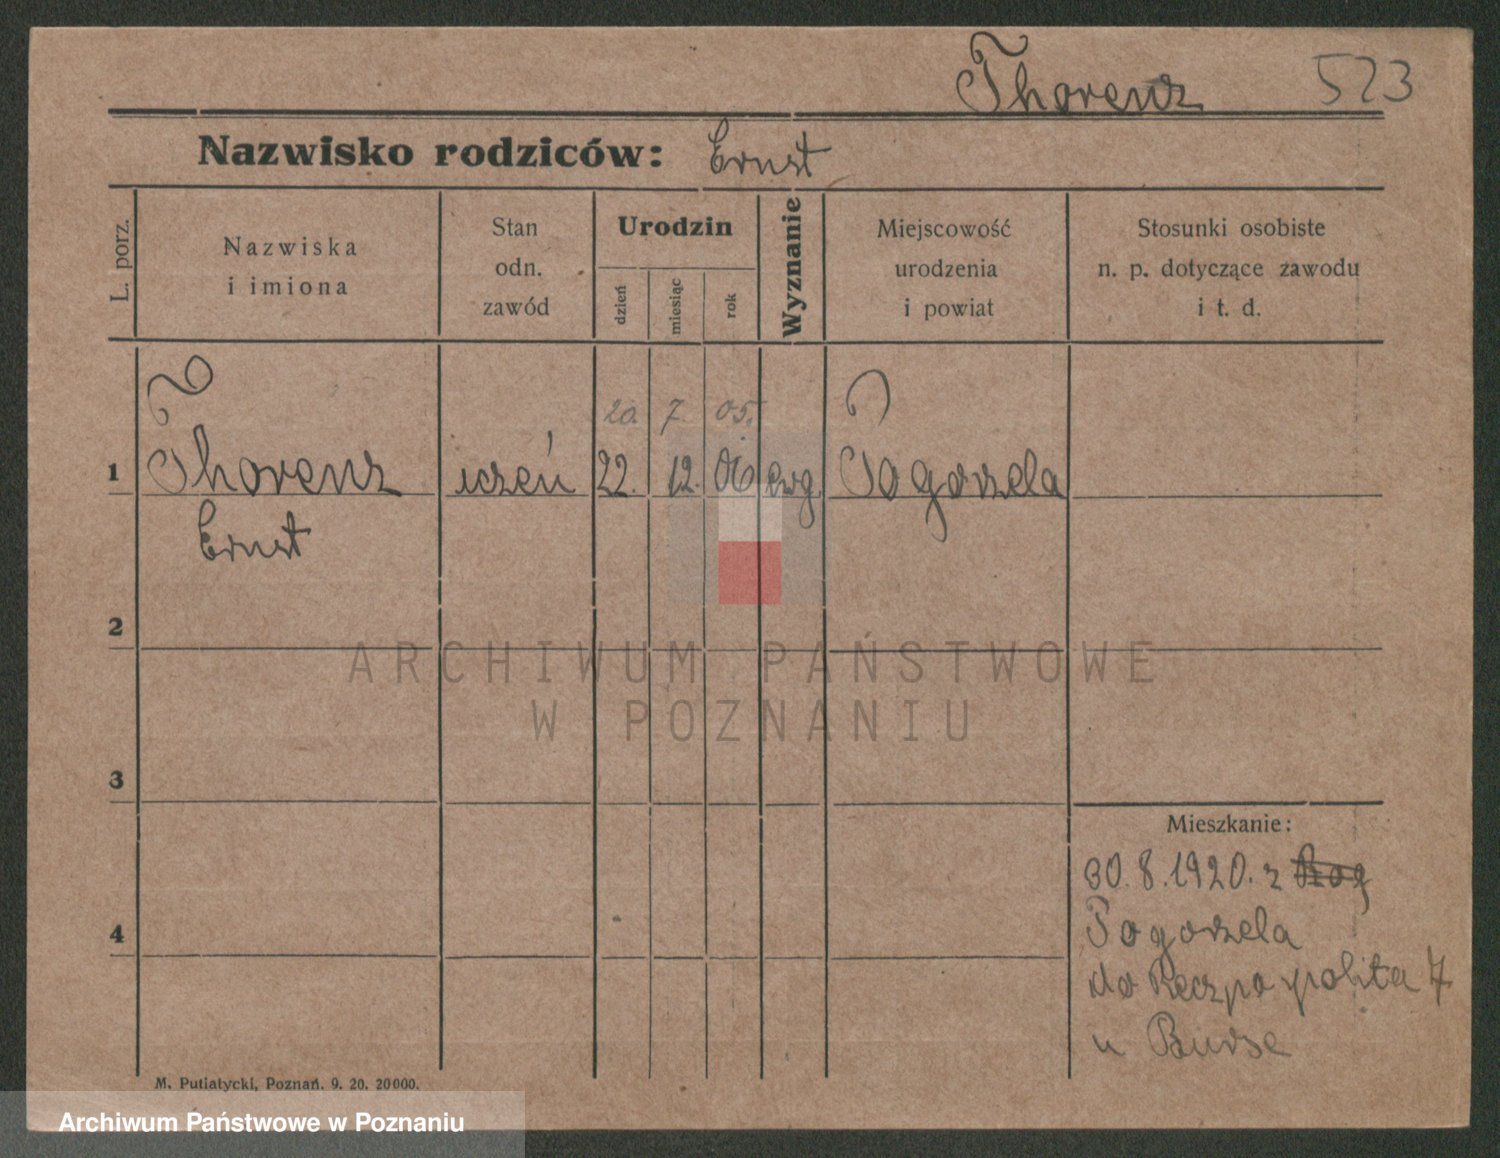 Thorenz 523
Nazwisko rodziców: Ernst
L. porz.
Nazwiska
i imiona
Stan
odn.
zawód
Urodzin
dzień
miesiąc
rok
Wyznanie
Miejscowość
urodzenia
i powiat
Stosunki osobiste
n. p. dotyczące zawodu
i t. d.
20. 7. 05.
1 Thorenz uczeń 22. 12. 06 ewg. Pogorzela
Ernst
2
ARCHIWUM PAŃSTWOWE
W POZNANIU
3
Mieszkanie:
30.8.1920. z
4
Pogorzela
do Reczpospolita 7
u
M. Putiatycki, Poznań. 9. 20. 20000.
Archiwum Państwowe w Poznaniu